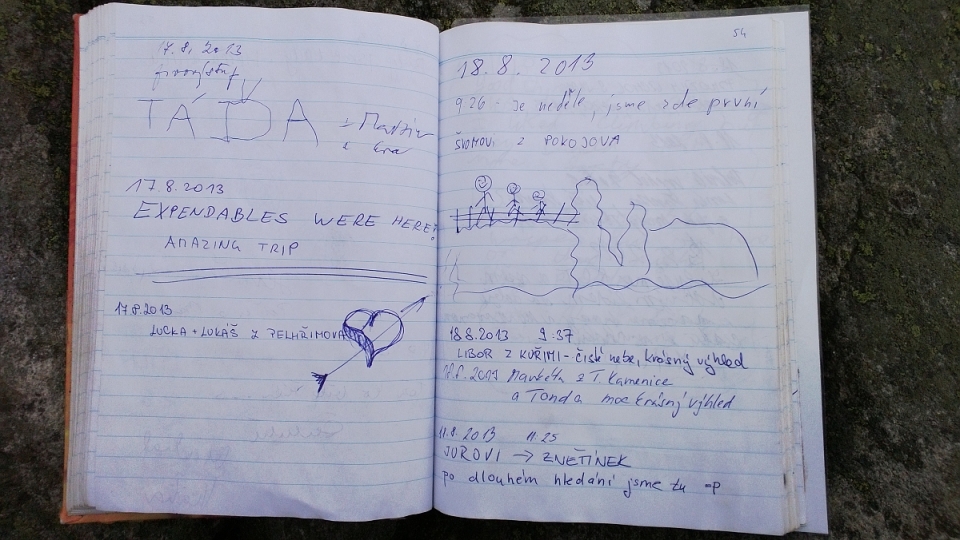 17.8.2013
TÁĎA
+ Martin
+ Eva
17.8.2013
EXPENDABLES WERE HERE!
AMAZING TRIP
17.8.2013
LUCKA + LUKÁŠ Z PELHŘIMOVA
54
18.8. 2013
9 26 - je neděle, jsme zde první
Z POKOJOVA
18.8.2013 9:37
LIBOR Z KUŘIMI - čisté nebe, krásný výhled
18.8.2013 Markéta z T. Kamenice
a Tonda moc krásný výhled
8.2013 11.25
JUROVI → ZNĚTÍNEK
po dlouhém hledání jsme tu =P